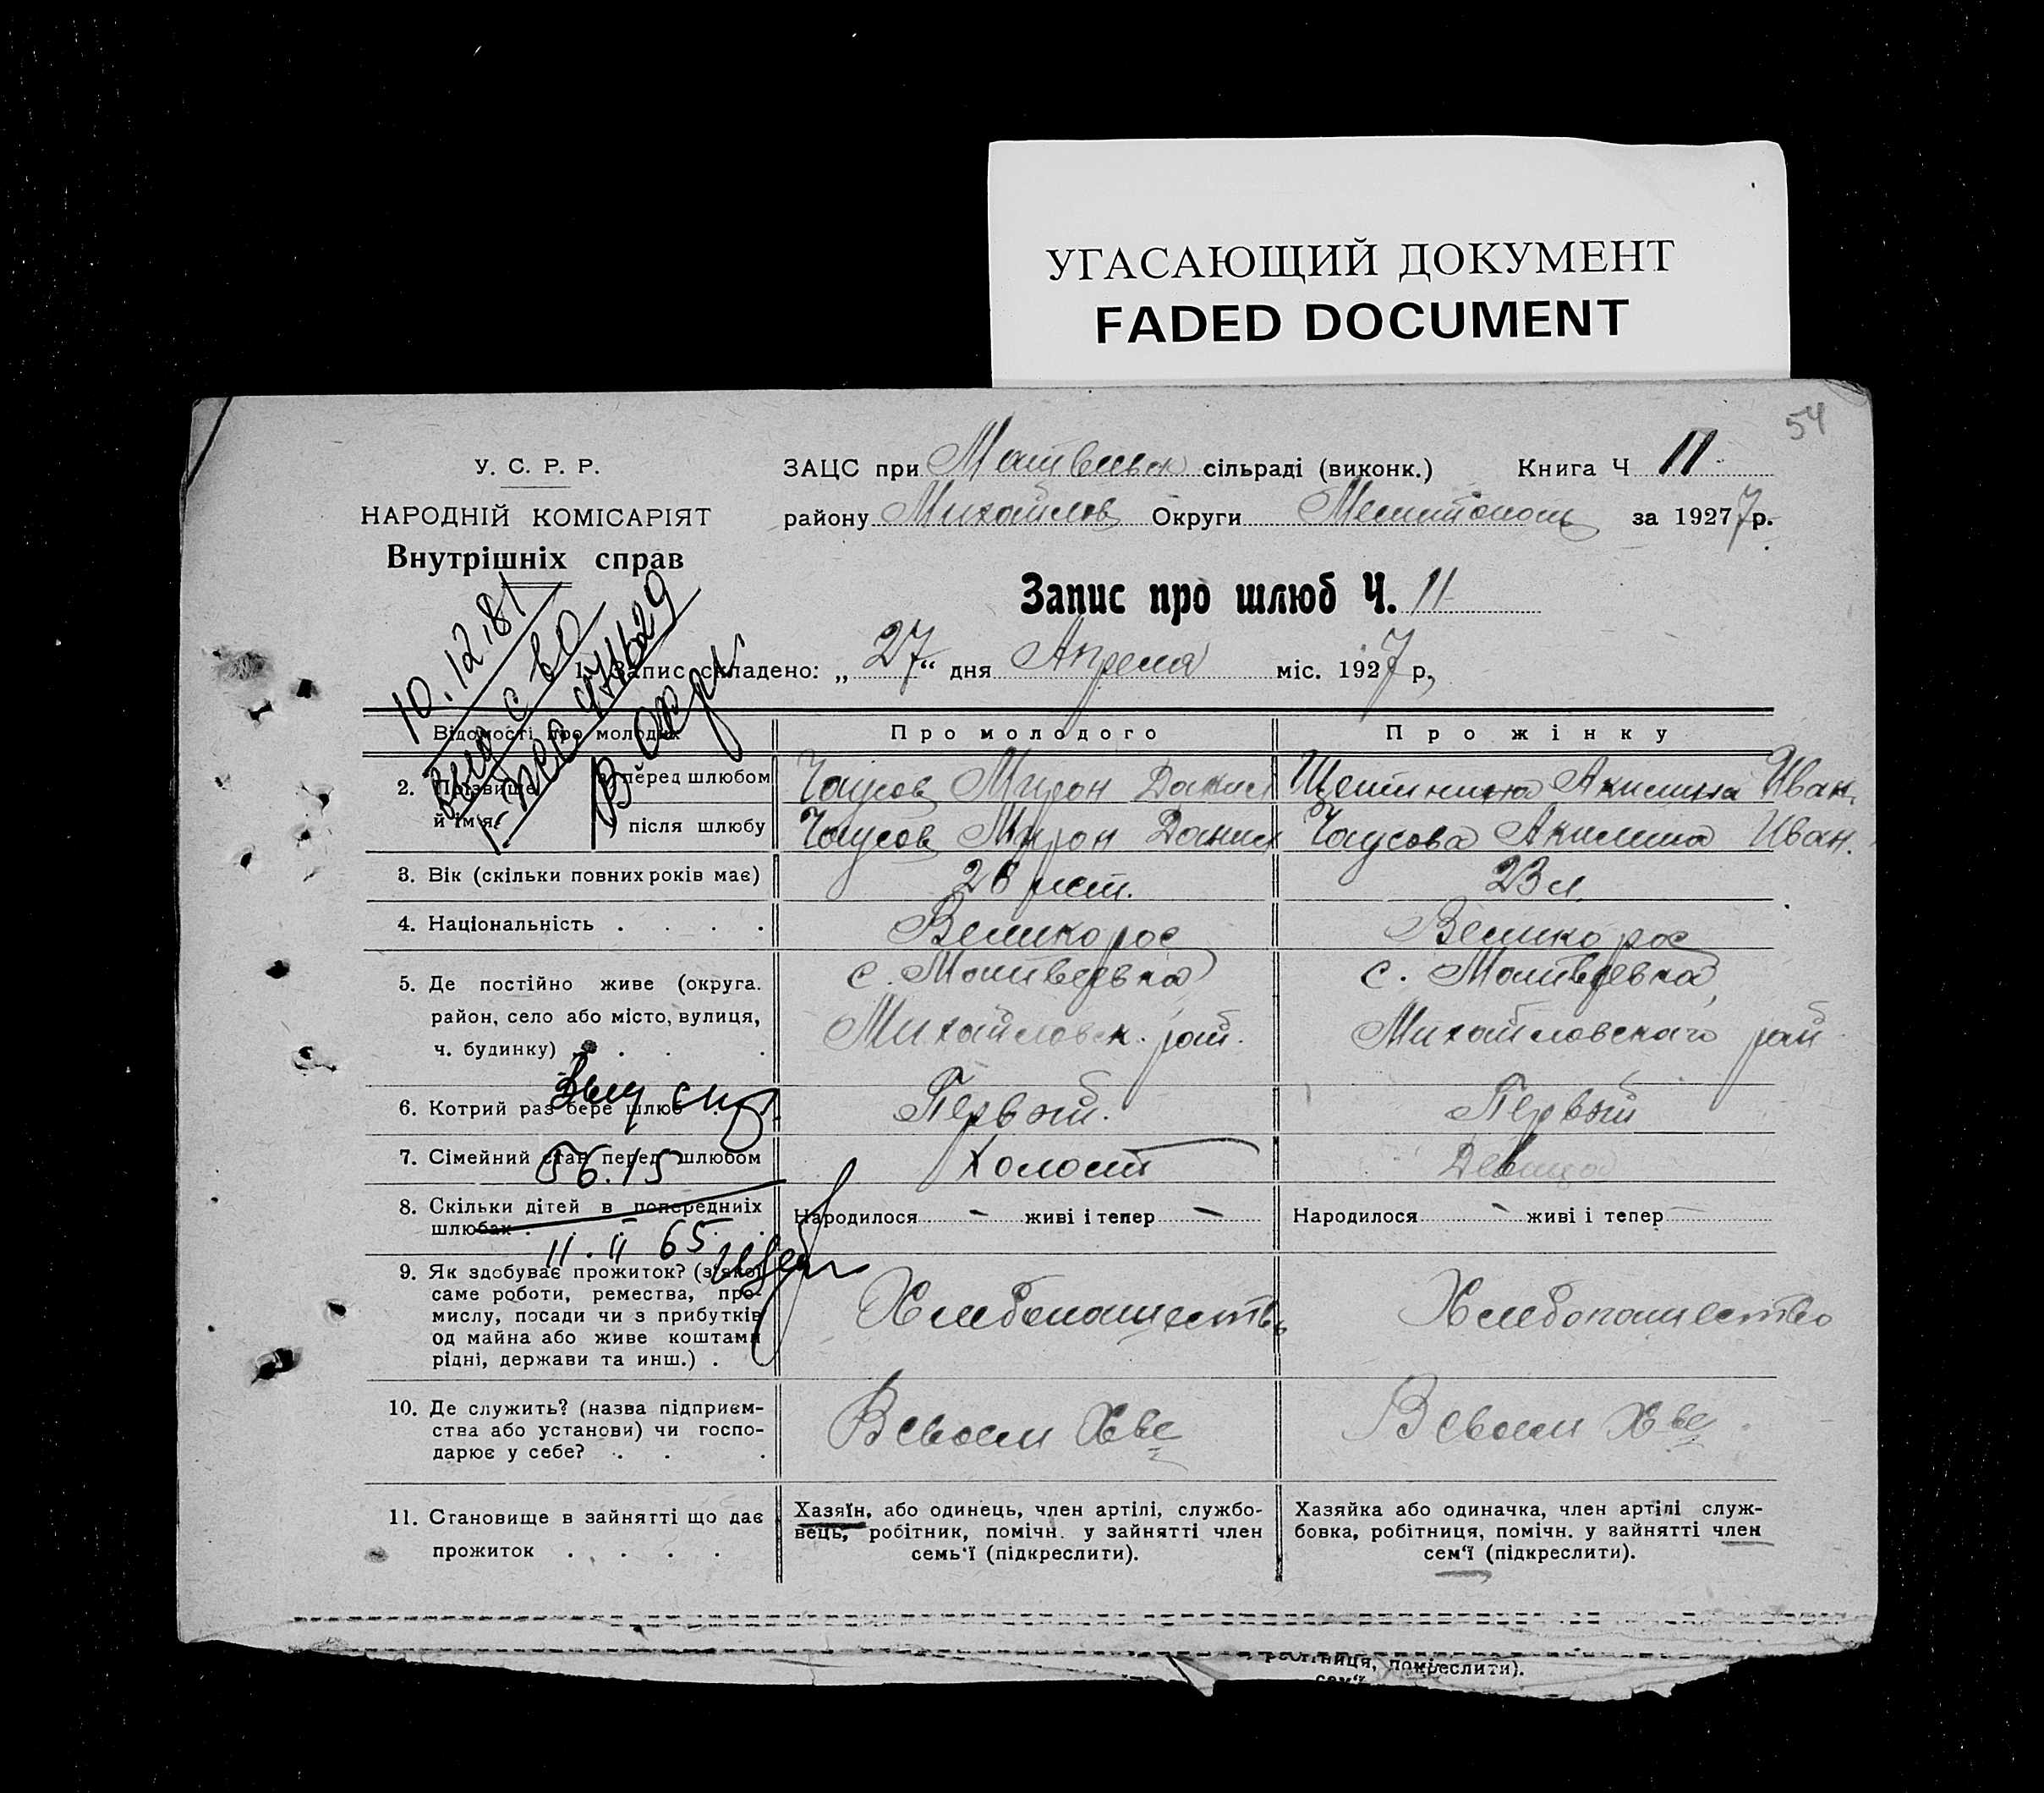 УГАСАЮЩИЙ ДОКУМЕНТ
FADED DOCUMENT
54
У. С. Р. Р.
НАРОДНІЙ КОМІСАРІЯТ
Внутрішніх справ
ЗАЦС при Матвеевск сільраді (виконк.) Книга Ч II
району Михайлов Округи Мелитополь за 1927 7р.
Запис про шлюб Ч. 11
10.12.81
1. Запис складено: „27“ дня Апреля міс. 1927 р,
Відомості про молодих Про молодого Про жінку
2. Прізвище й ім'я: перед шлюбом Чаусов Мирон Данил Щетинина Акилина Иван.
після шлюбу Чаусов Мирон Данил Чаусова Акилина Иван.
3. Вік (скільки повних років має) 26 лет. 23 л.
4. Національність . . . . Великорос Великорос
5. Де постійно живе (округа. с. Матвеевка с. Матвеевка,
район, село або місто, вулиця, Михайловск. рай. Михайловскаго рай
ч. будинку) . . .
6. Котрий раз бере шлюб Первый. Первый
7. Сімейний стан перед шлюбом Холост Девица
56.15
8. Скільки дітей в попередниіх
шлюбах . . . . Народилося - живі і тепер - Народилося - живі і тепер
11.II 65
9. Як здобуває прожиток? (з якої
саме роботи, ремества, про-
мислу, посади чи з прибутків Хлебопашество Хлебопашество
од майна або живе коштами
рідні, держави та инш.) .
10. Де служить? (назва підприєм-
ства або установи) чи госпо- В своем Хве В своем Хве
дарює у себе? . . .
11. Становище в зайнятті що дає
прожиток . . . .
Хазяїн, або одинець, член артілі, службо-
вець, робітник, помічн. у зайнятті член
семь'ї (підкреслити).
Хазяйка або одиначка, член артілі служ-
бовка, робітниця, помічн. у зайнятті член
сем'ї (підкреслити).